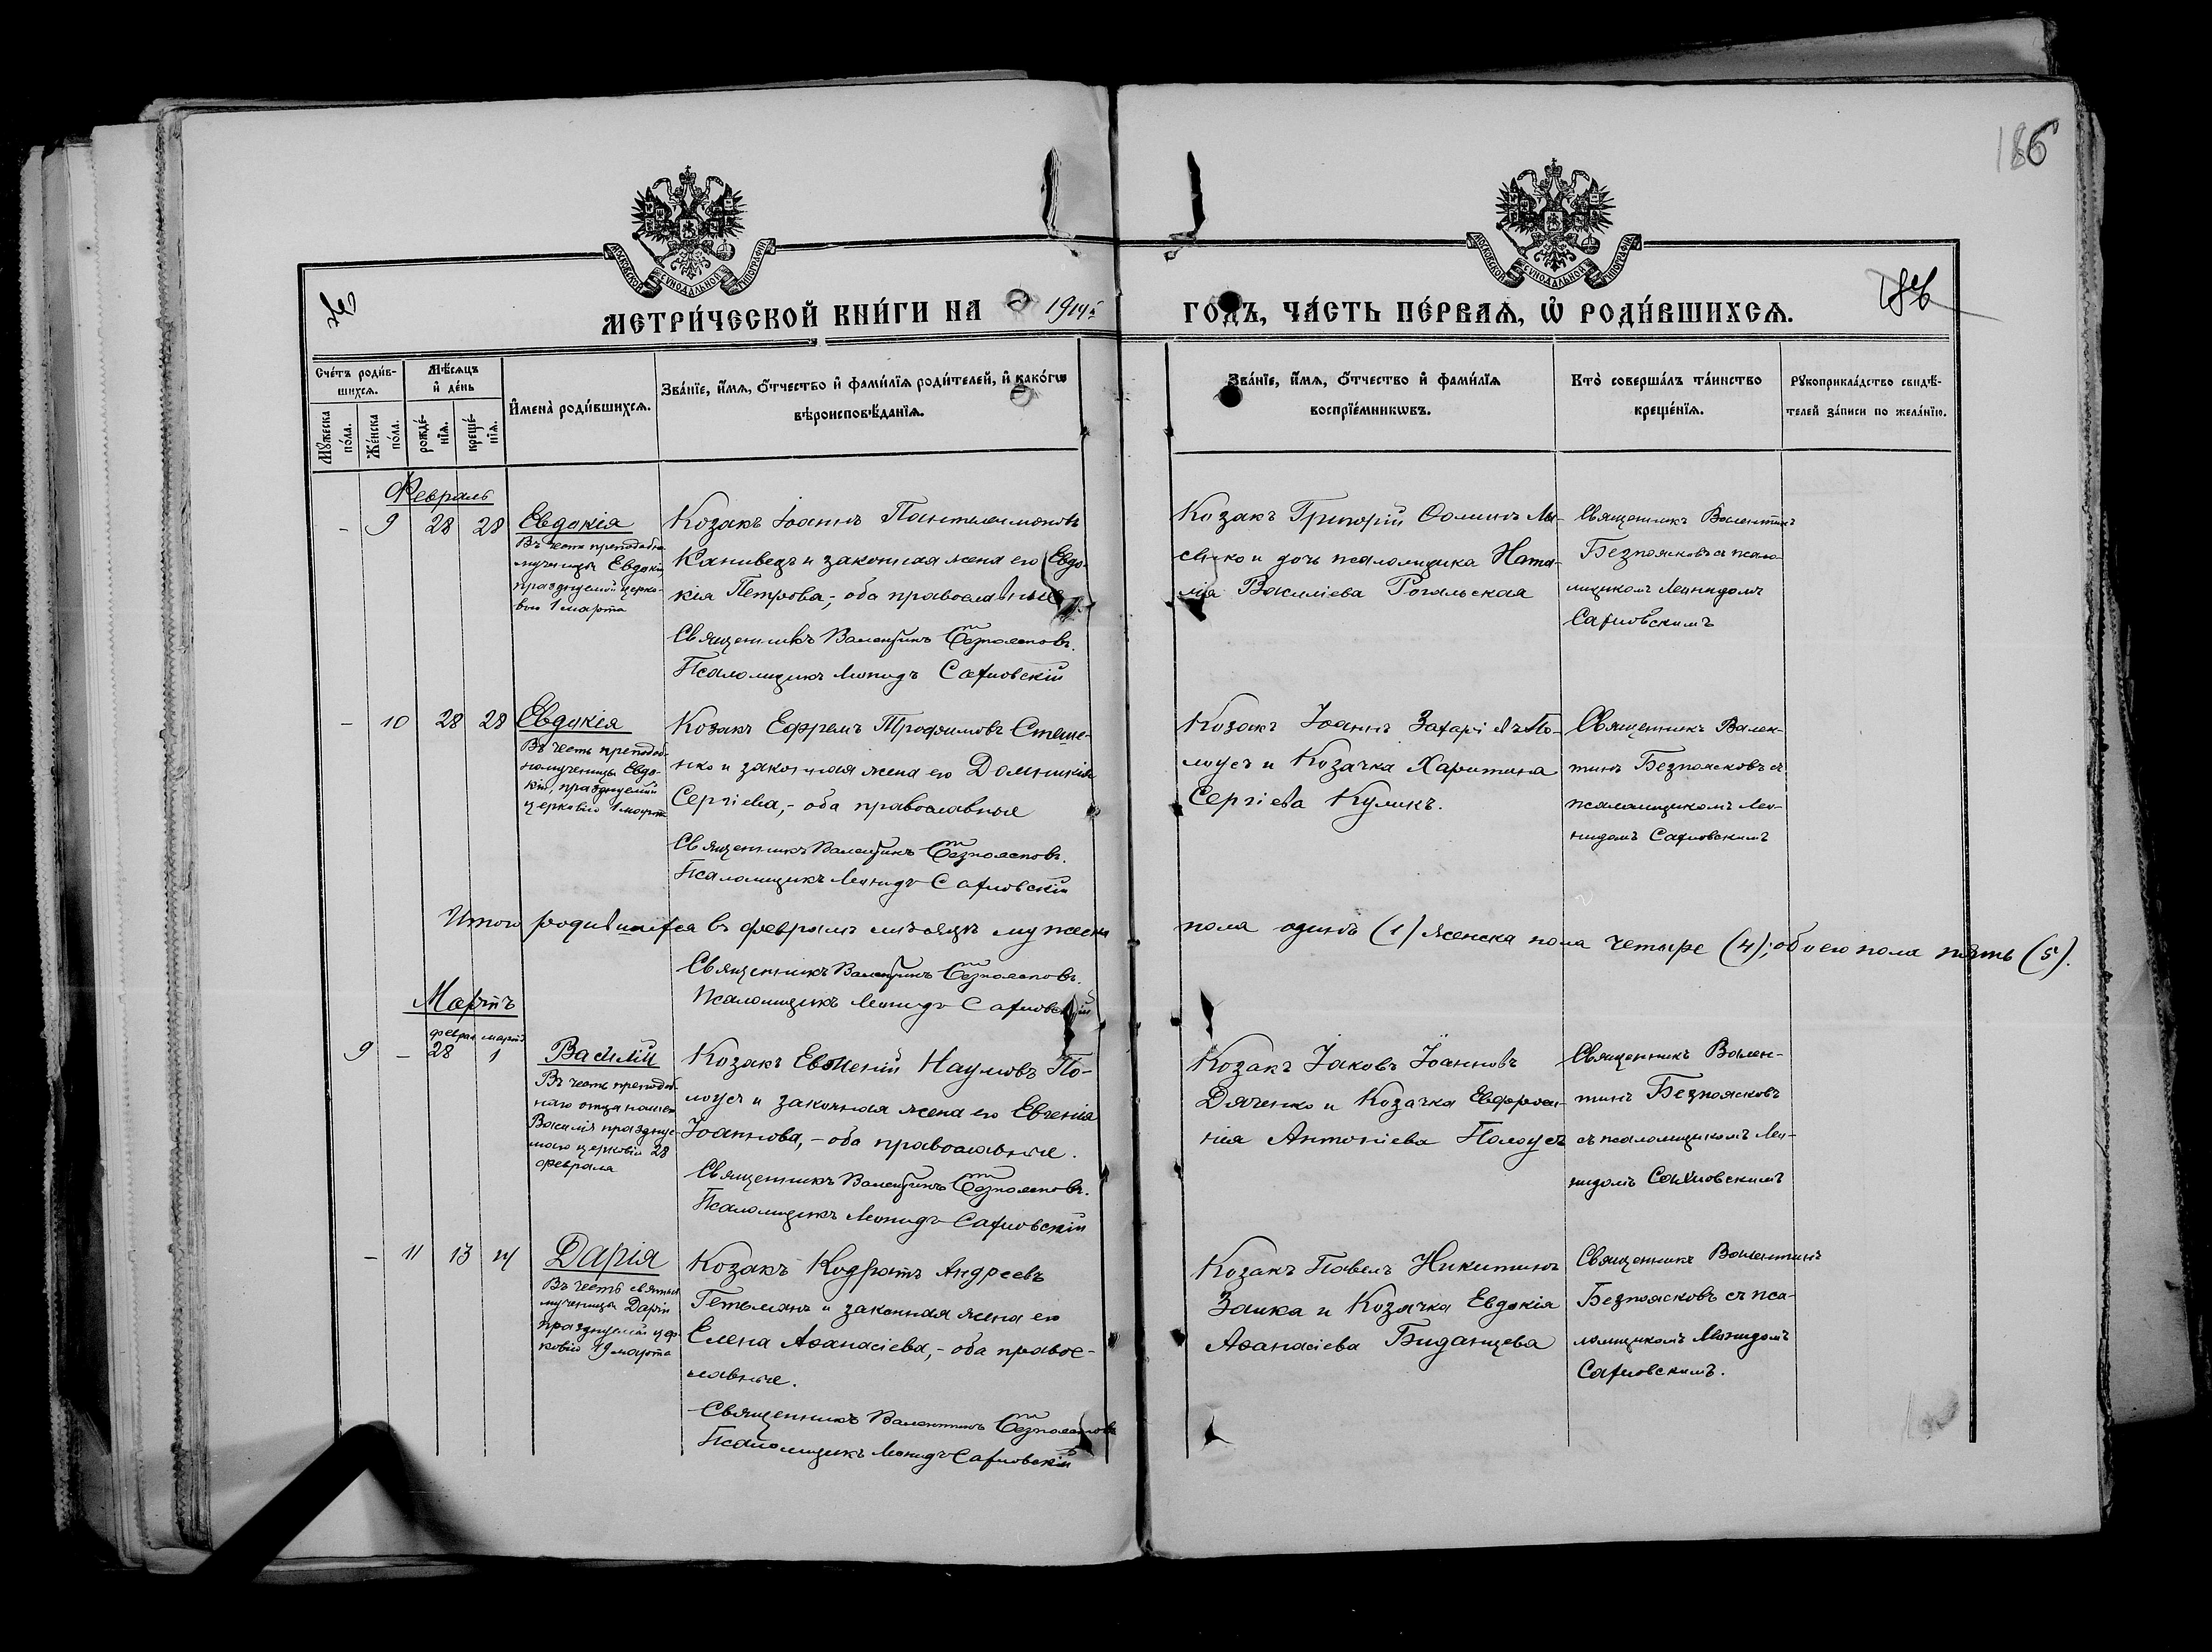 186
МОСКОВСКОЙ СѴНОДАЛЬНОЙ ТИПОГРАФІИ
МОСКОВСКОЙ СѴНОДАЛЬНОЙ ТИПОГРАФІИ
МЕТРИ́ЧЕСКОЙ КНИ́ГИ НА 1914й ГОДЪ, ЧА́СТЬ ПЕ́РВАѦ, Ѡ РОДИ́ВШИХСѦ.
Сче́тъ роди́в-
шихсѧ.
Мꙋ́жеска
по́ла.
Же́нска
по́ла.
Мѣ́сѧцъ
и҆ де́нь
рожде́-
нїѧ.
креще́-
нїѧ.
И҆мена̀ роди́вшихсѧ.
Зва́нїе, и҆́мѧ, ѻ҆́тчество и҆ фами́лїѧ роди́телей, и҆ како́гѡ
вѣроисповѣ́данїѧ.
Зва́нїе, и҆́мѧ, ѻ҆́тчество и҆ фами́лїѧ
воспрїе́мникѡвъ.
Кто̀ соверша́лъ та́инство
креще́нїѧ.
Рꙋкоприкла́дство свидѣ́-
телей за́писи по жела́нїю.
Февраль
- 9 28 28
Евдокія
Въ честь преподобно-
мученицы Евдокіи,
празднуемой церко-
вію 1 марта
Козакъ Іоаннъ Пантелеимоновъ
Каниведъ и законная жена его Евдо-
кія Петрова,- оба православные
Священникъ Валентинъ Безпоясковъ.
Псаломщикъ Леонидъ
Козакъ Григорій Ѳоминъ Лы-
сенко и дочь псаломщика Ната-
лія Василіева Рогальская
Священникъ Валентинъ
Безпоясковъ съ псало-
мщикомъ Леонидомъ
- 10 28 28
Евдокія
Въ честь преподоб-
номученицы Евдо-
кіи, празднуемой
церковію 1 марта
Козакъ Ефремъ Трофимовъ Стеше-
нко и законная жена его Домникія
Сергіева,- оба православные
Священникъ Валентинъ Безпоясковъ.
Псаломщикъ Леонидъ
Козакъ Іоаннъ Захаріевъ По-
лоусъ и Козачка Харитина
Сергіева Куликъ.
Священникъ Вален-
тинъ Безпоясковъ съ
псаломщикомъ Лео-
нидомъ
Итого родившихся въ февралѣ мѣсяцѣ мужеска пола одинъ (1) женска пола четыре (4); обоего пола пять (5).
Священникъ Валентинъ Безпоясковъ.
Псаломщикъ Леонидъ
Мартъ
феврал марта
9 - 28 1
Василій
Въ честь преподоб-
наго отца нашего
Василія празднуе-
маго церковію 28
февраля
Козакъ Евѳимій Наумовъ По-
лоусъ и законная жена его Евгенія
Іоаннова,- оба православные.
Священникъ Валентинъ Безпоясковъ.
Псаломщикъ Леонидъ
Козакъ Іаковъ Іоанновъ
Дяченко и Козачка Евфроси-
нія Антоніева Полоусъ
Священникъ Вален-
тинъ Безпоясковъ
съ псаломщикомъ Лео-
нидомъ
- 11 13 14
Дарія
Въ честь святыя
мученицы Даріи
празднуемой цер-
ковію 19 марта
Козакъ Кодратъ Андреевъ
Гетьманъ и законная жена его
Елена Аѳанасіева,- оба правос-
лавные.
Священникъ Валентинъ Безпоясковъ
Псаломщикъ Леонидъ
Козакъ Павелъ Никитинъ
Заика и Козачка Евдокія
Аѳанасіева Биданцева
Священникъ Валентинъ
Безпоясковъ съ пса-
ломщикомъ Леонидомъ